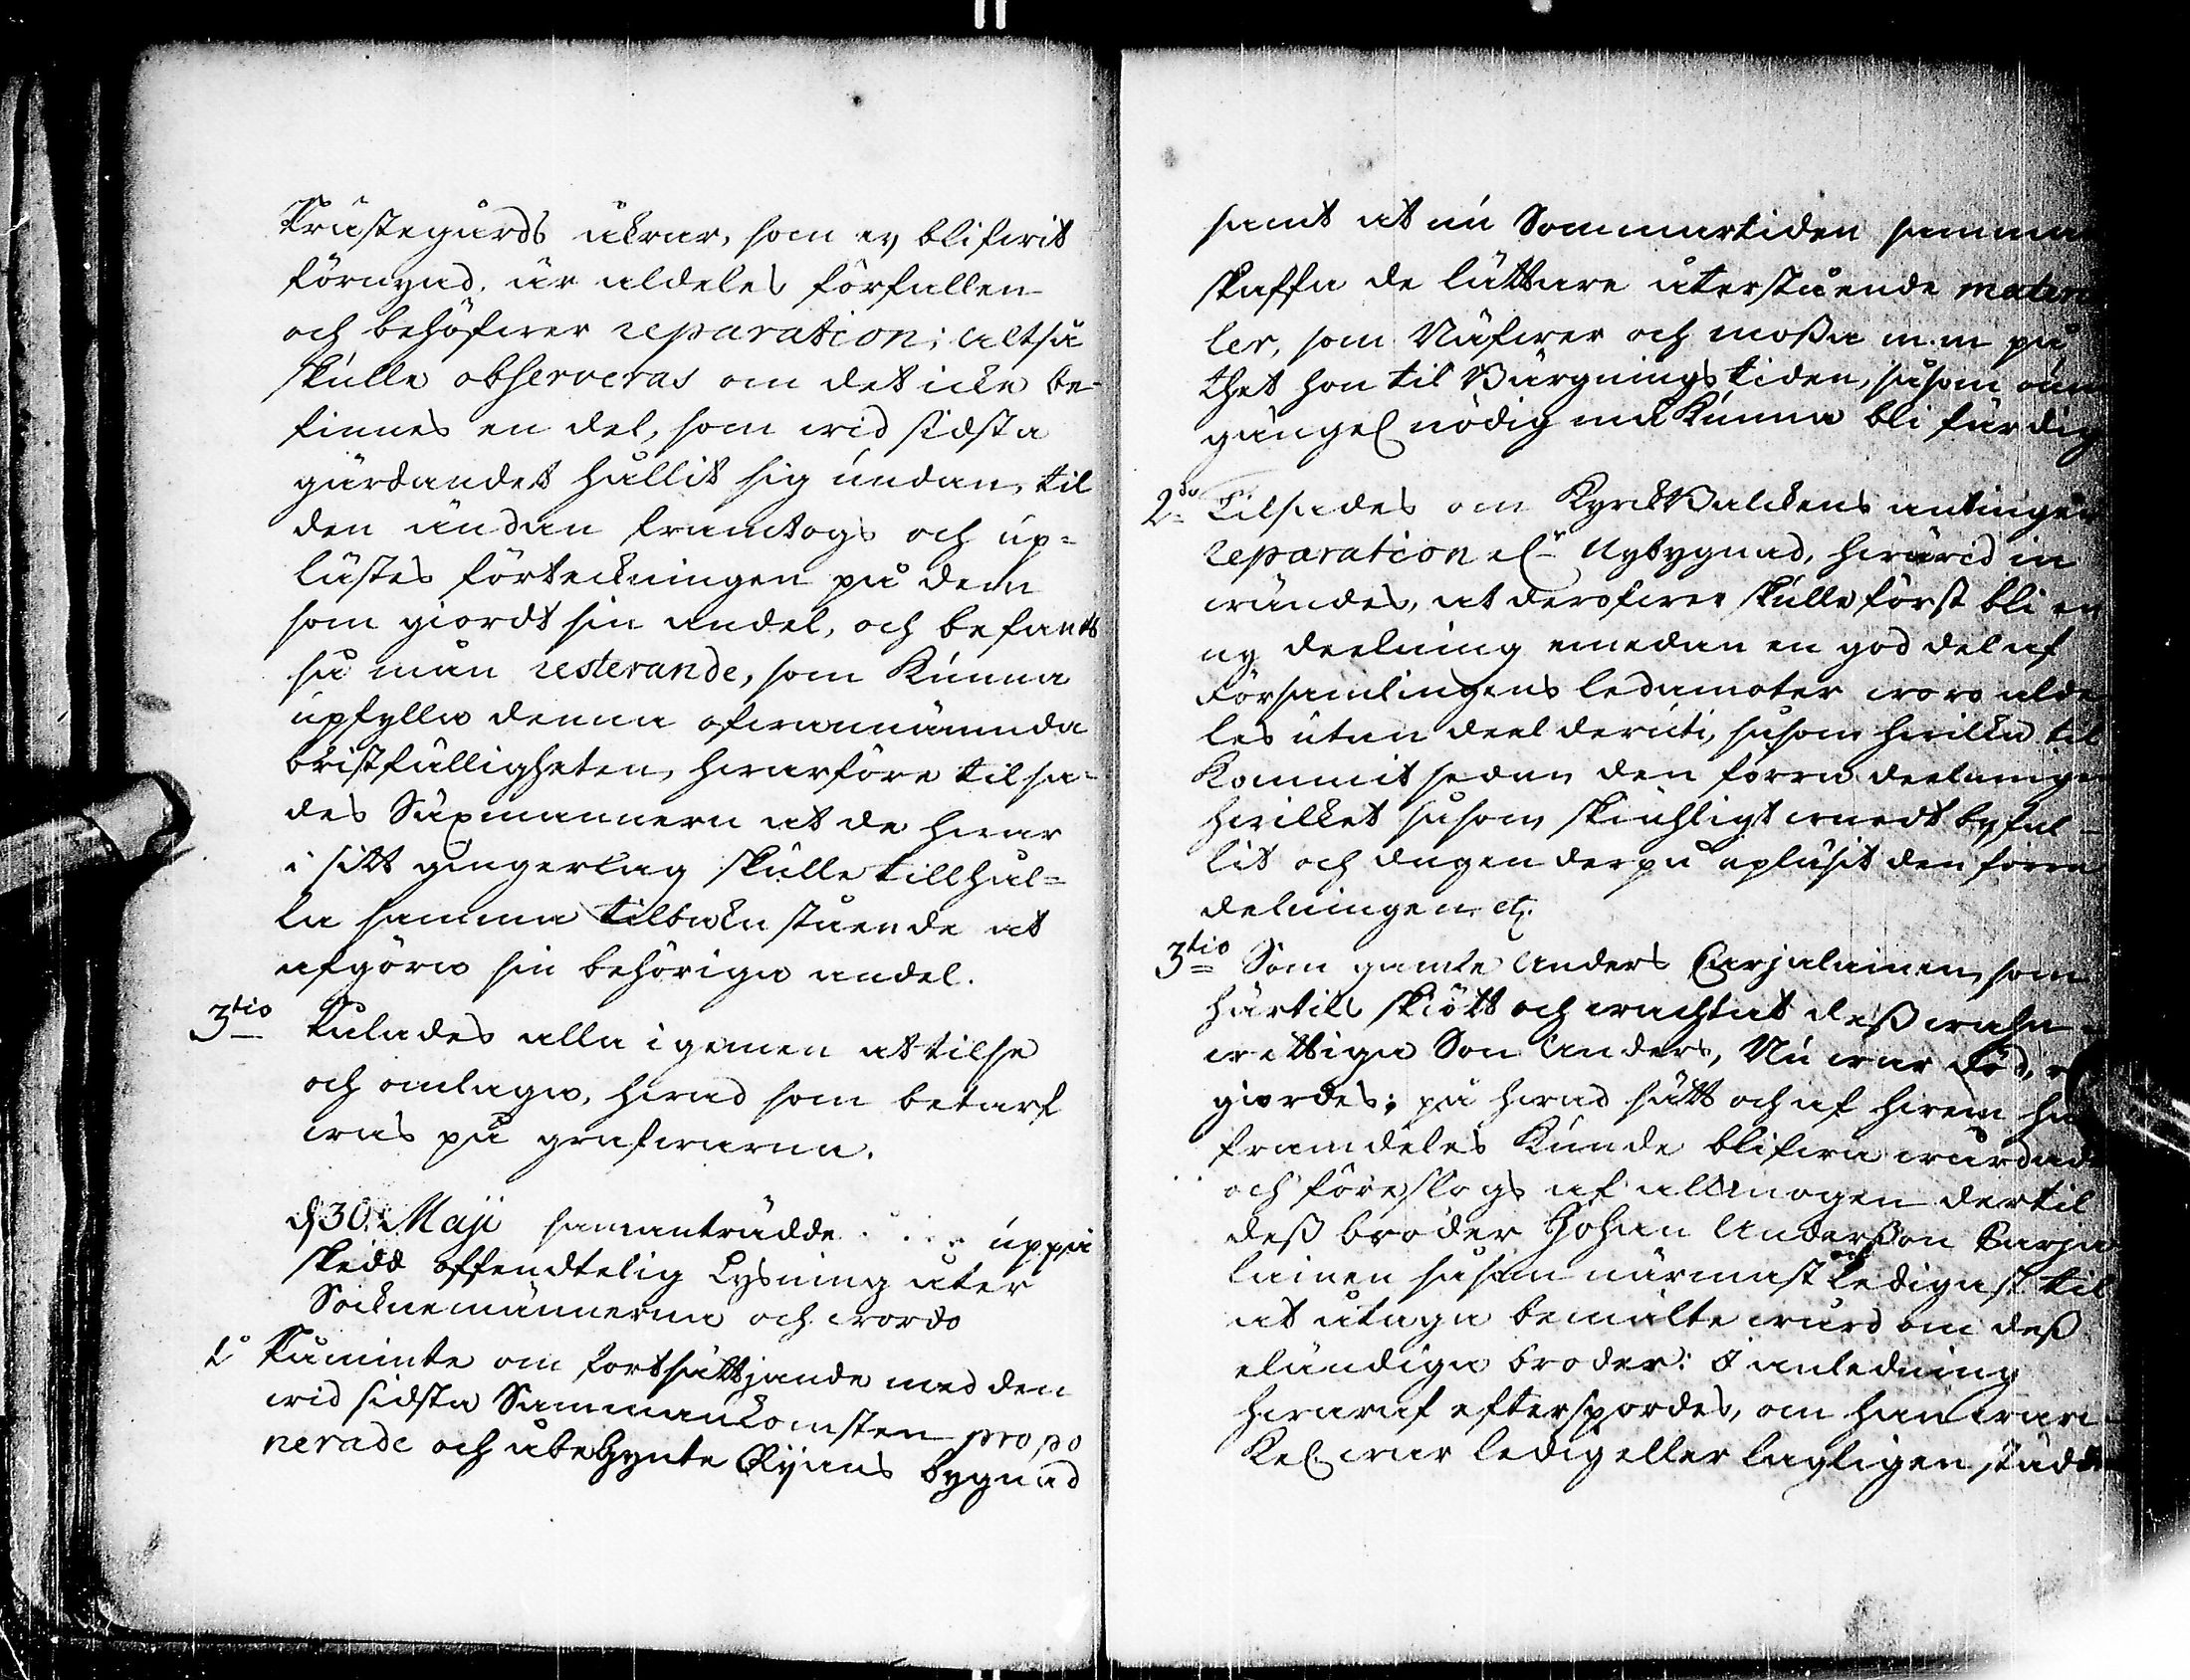 Prästegårds åkrar, som ej blifwit
förnyad, är aldeles förfallen
och behöfwer reparation; altså
skulle observeras om det icke be-
finnes en del, som wid sidsta
gärdandet hållit sig undan, til
den ändan framtogs och up-
lästes förtekningen på dem
som giordt sin andel, och befants
så mån resterande, som kunna
upfylla denna ofwannämnda
bristfälligheten, hwarföre tilsa-
des Säxmännern at de hwar
i sitt gingerlag skulle tillhål-
la samma tilbaka stående at
afgöra sin behöriga andel.
3tio Talades alla i gemen at tilse
och omlaga, hwad som betarf
was på grafwarna.
d. 30. Maji samanträdde uppå
skedd offendtelig Lysning åter
Socknemännerna och wordo
1o Påminte om fortsättjande med den
wid sidsta Sammankomsten propo
nerade och åbegynte Rijans bygnad
samt at nu Sommartiden samman
skaffa de lättare återstående materi
ler, som Näfwer och moßa m.m på
thet hon til Bärgningstiden, såsom oum
gängel. nödig må kunna bli färdig
2do Tilsades om KyrckBalckens antingen
reparation el.r Nybygnad, hwarwid in
wändes, at deröfwer skulle först bli en
ny deelning emedan en god del af
Församlingens ledamoter woro alde
les utan deel deruti, såsom hwilka til
kommit sedan den förra deelningen
hwilket såsom skiähligt wardt byfal-
lit och dagen derpå oplåsit den förra
delningen etc.
3tio Som gamle Anders Carjalainen, som
härtils skiött och wachtat deß wahn-
wettiga Son Anders, Nu war död,
giordes; på hwad sätt och af hwem han
framdeles kunde blifwa wårdad
och föreslogs af allmogen dertil
deß broder Johan Anderßon Carja
lainen såsom närmast och ledigast til
at åtaga bemälte wård om deß
eländiga broder: I anledning
hwaraf efterspordes, om han war
Kel. war ledig eller lagligen städd